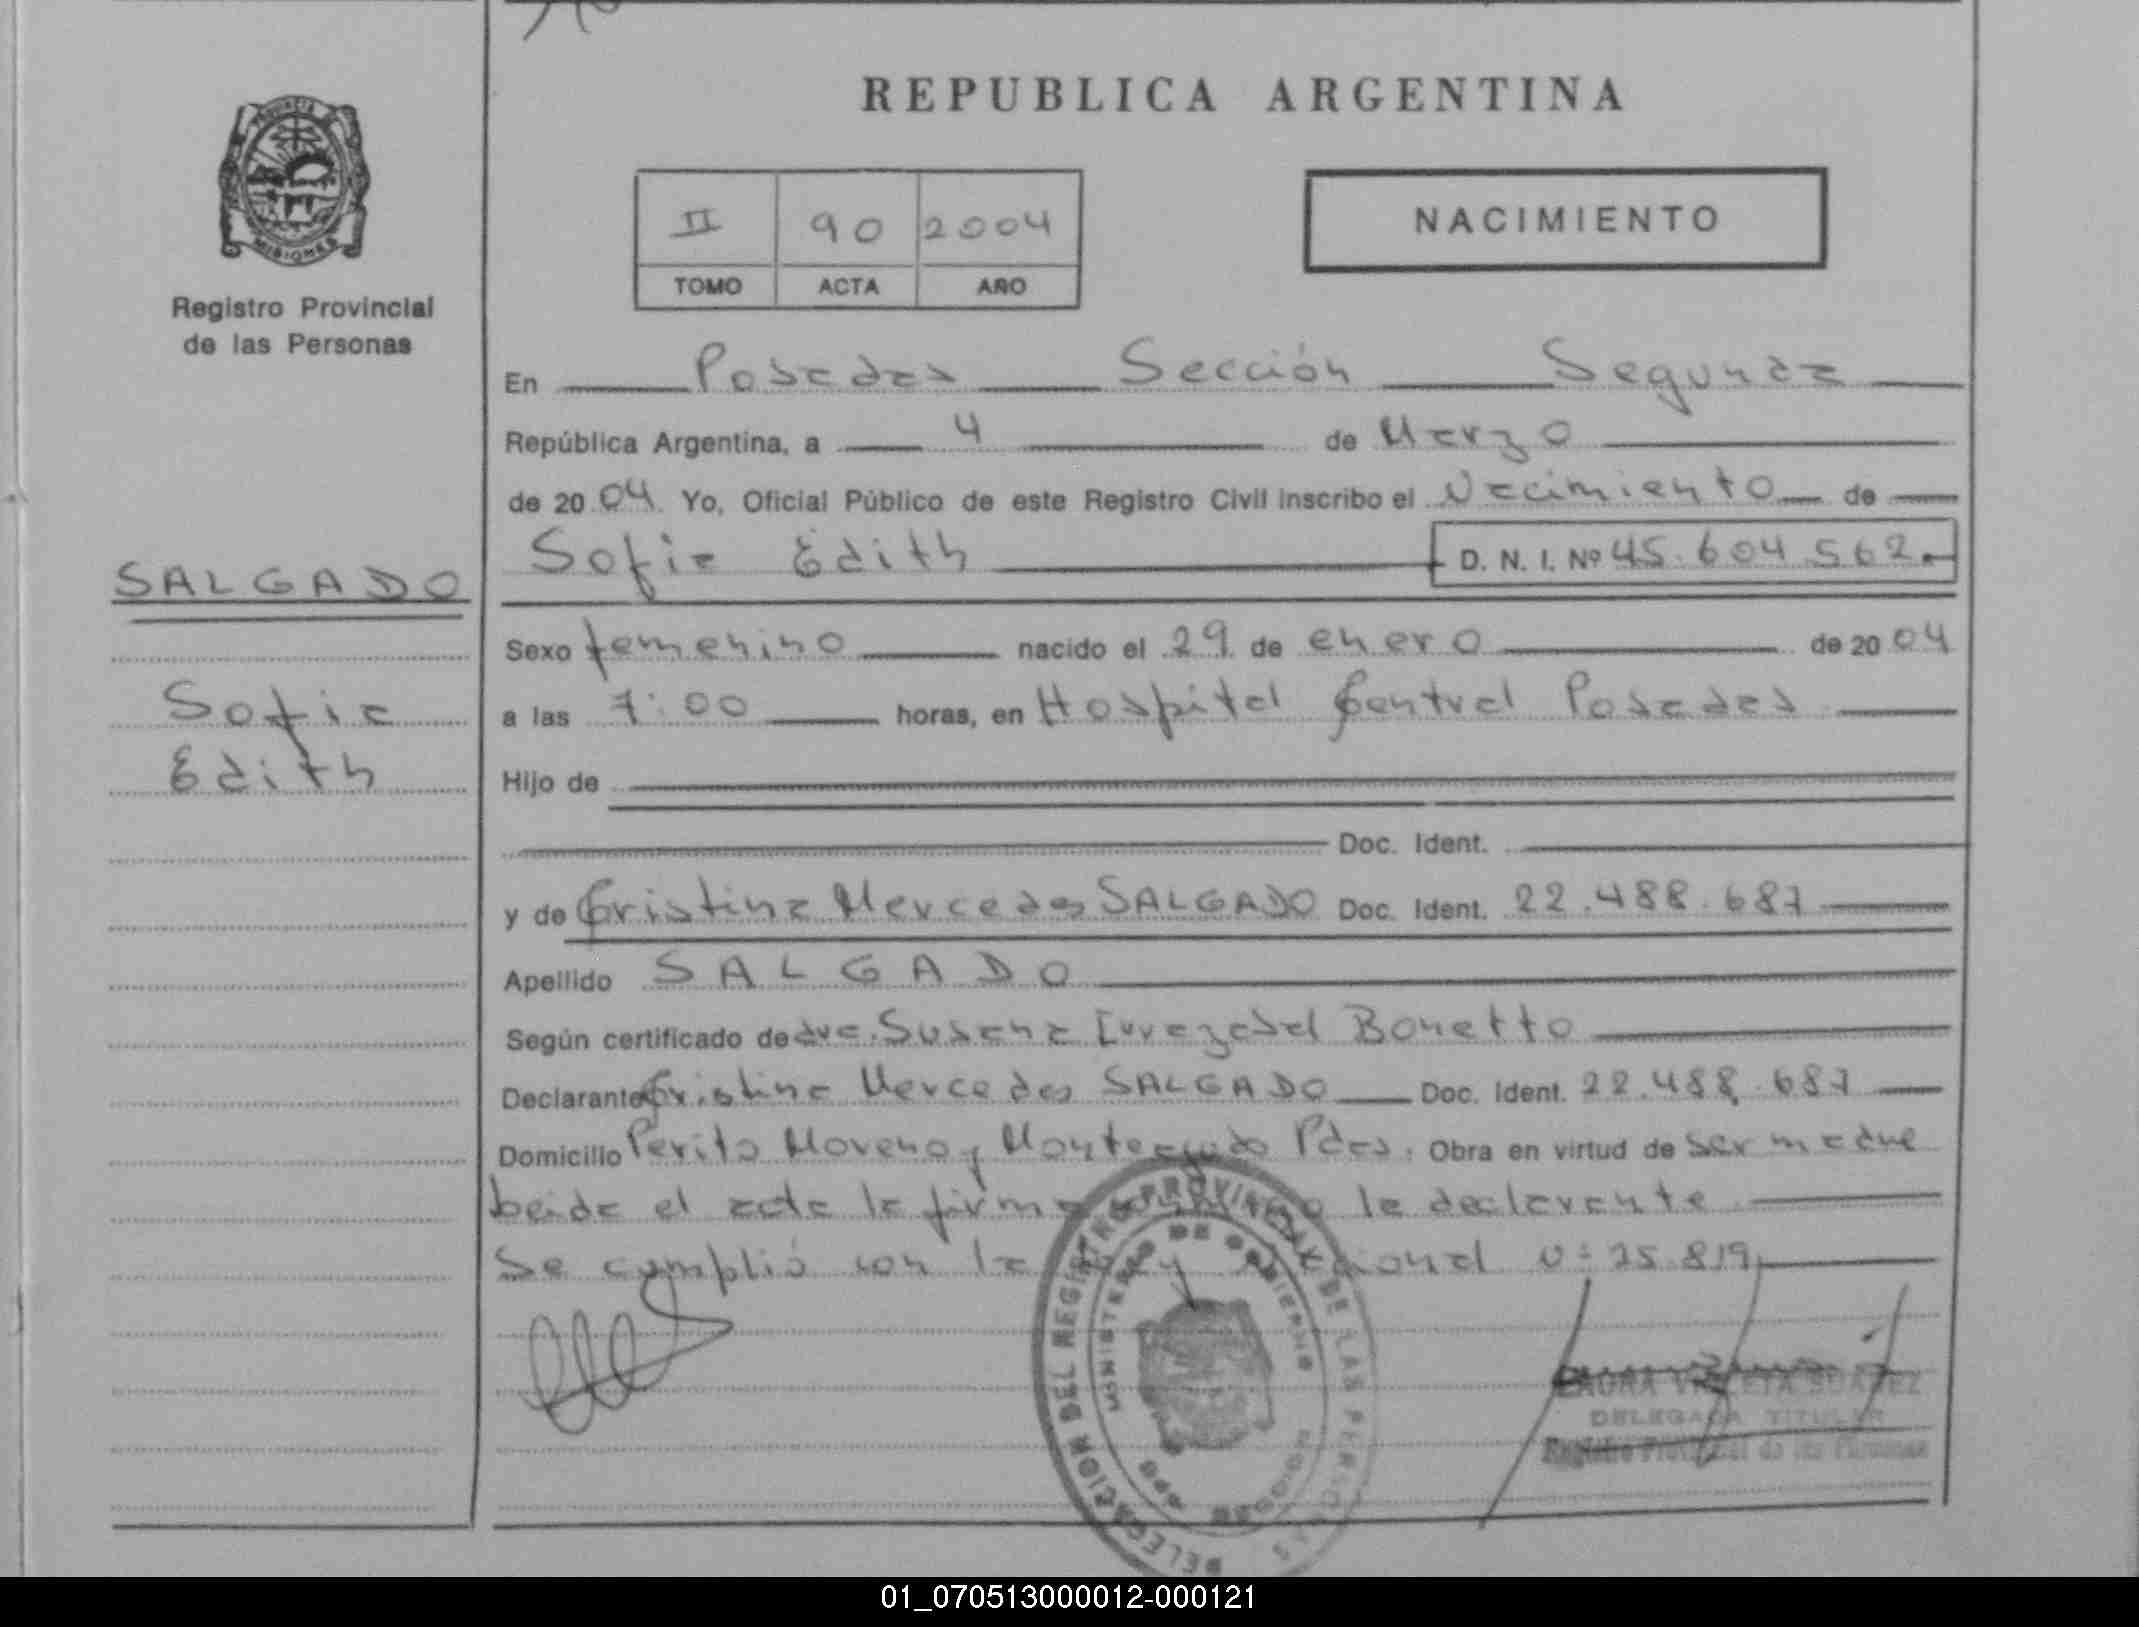 REPUBLICA ARGENTINA
PROVINCIA DE MISIONES
Registro Provincial
de las Personas
II 90 2004
TOMO ACTA AÑO
NACIMIENTO
En Posadas Sección Segunda
República Argentina, a 4 de Marzo
de 2004 Yo, Oficial Público de este Registro Civil inscribo el Nacimiento de
Sofia Edith D. N. I. Nº 45.604.562.
SALGADO
Sofia
Edith
Sexo femenino nacido el 29 de enero de 2004
a las 7:00 horas, en Hospital Central Posadas
Hijo de
Doc. Ident.
y de Cristina Mercedes SALGADO Doc. Ident. 22.488.687
Apellido SALGADO
Según certificado de dra. Susana Irrazabal Bonetto
Declarante Cristina Mercedes SALGADO Doc. Ident. 22.488.687
Domicilio Perito Moreno y Monteagudo Pdas. Obra en virtud de ser madre
leida el acta la firma conmigo la declarante
Se cumplió con la Ley Nacional Nº 25.819
DELEGACION DEL REGISTRO PROVINCIAL DE LAS PERSONAS
MINISTERIO DE GOBIERNO
DELEGADA TITULAR
Registro Provincial de las Personas
01_070513000012-000121